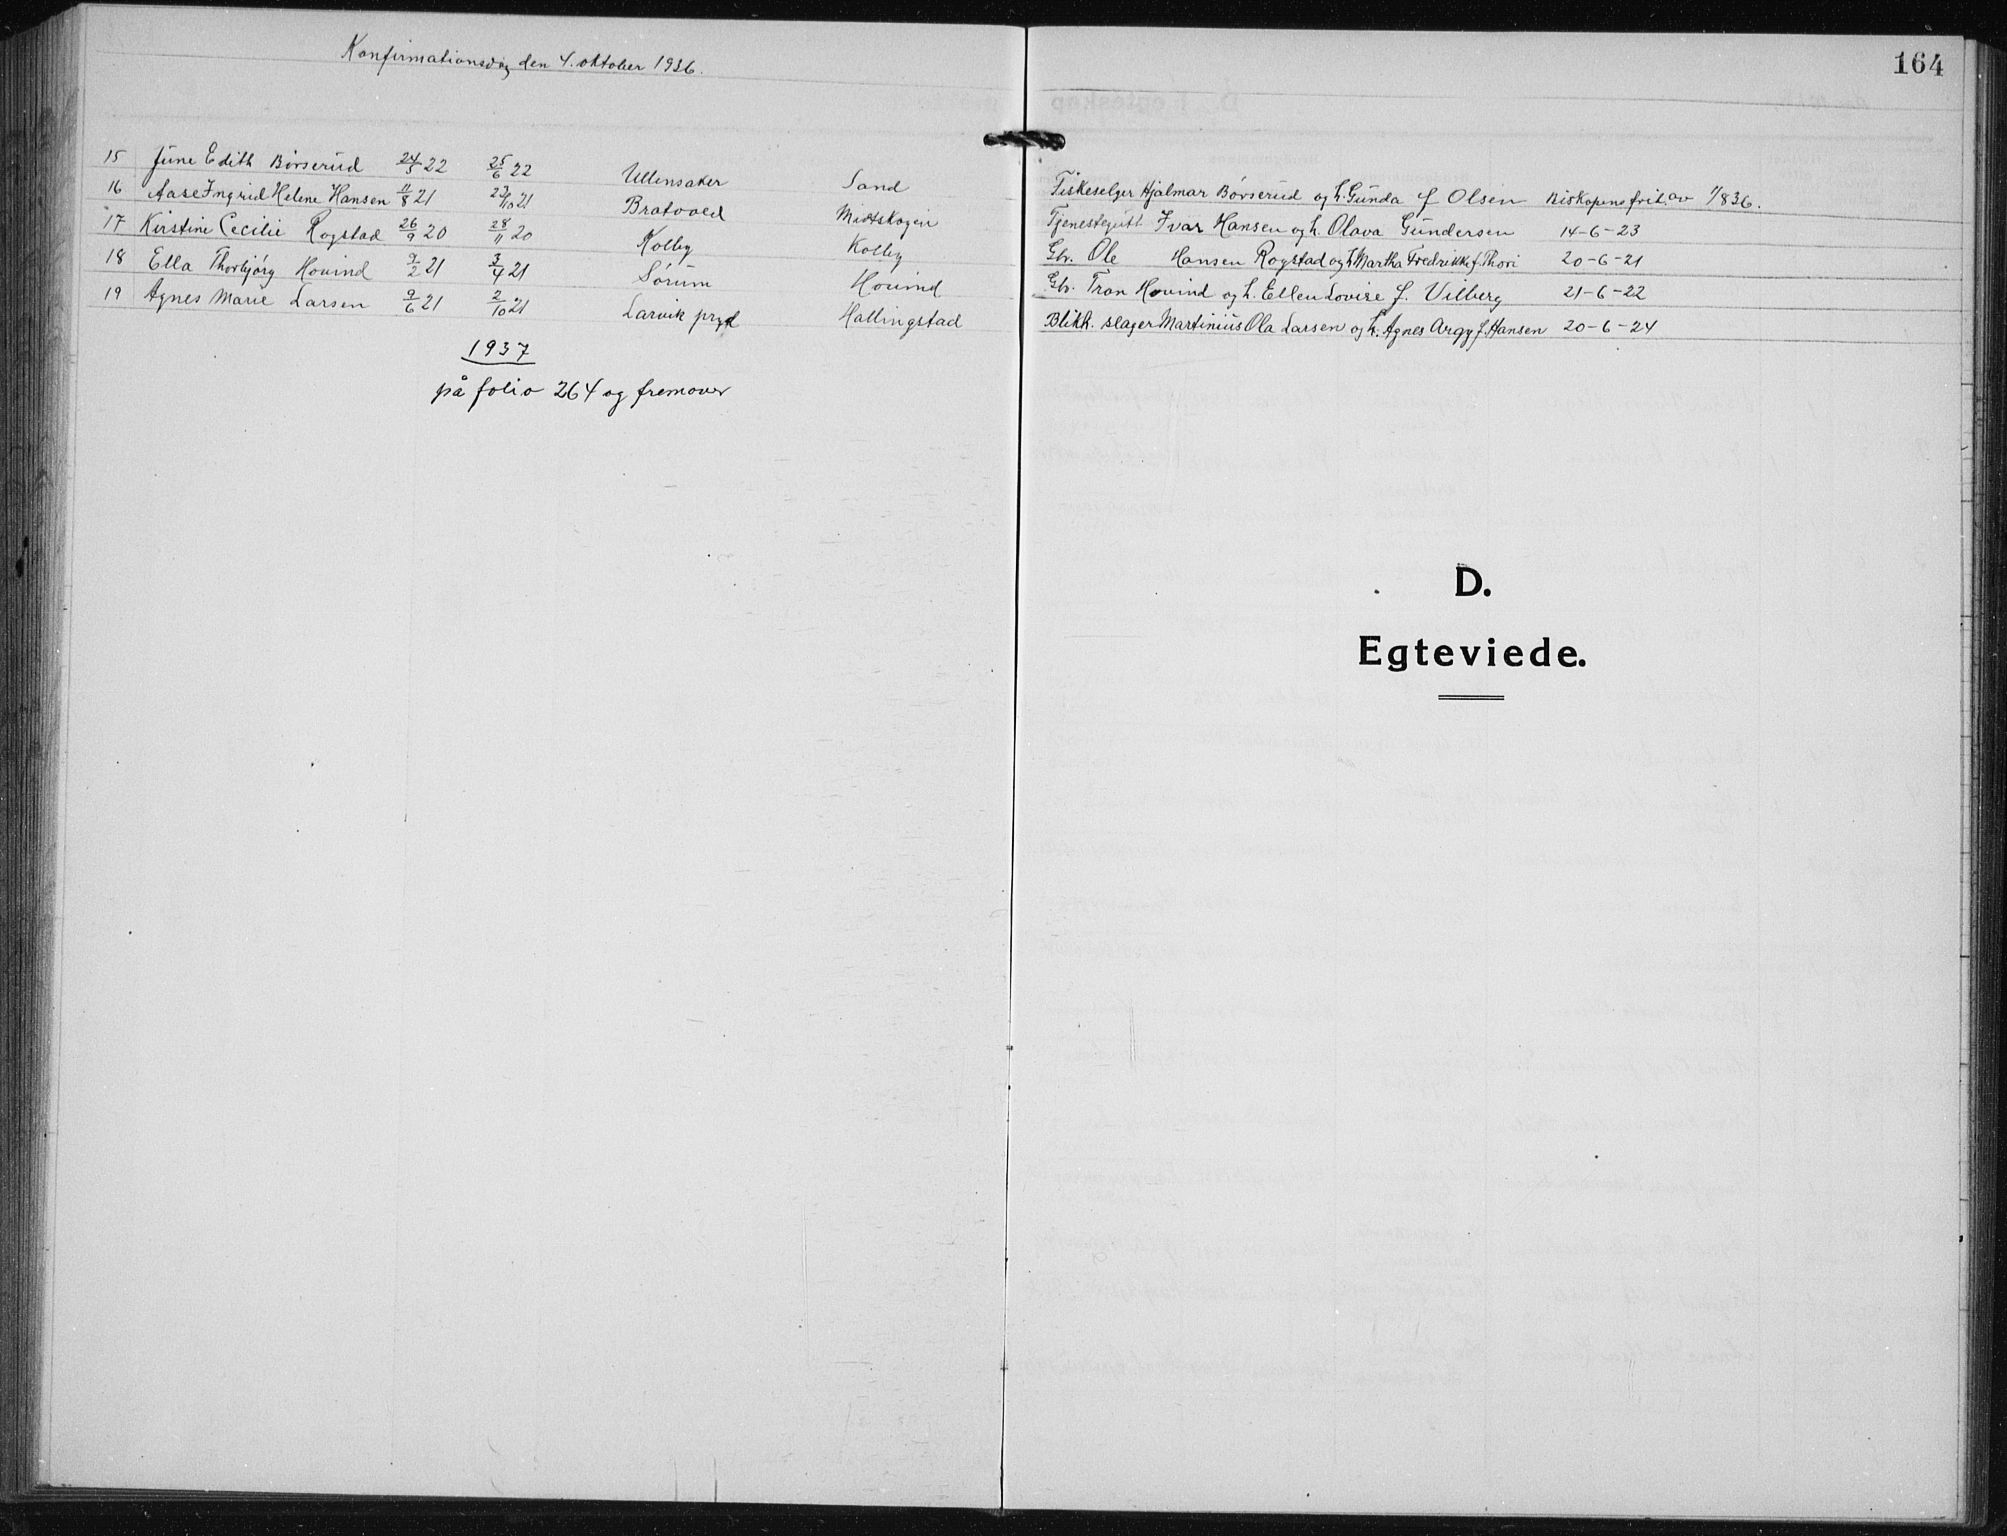 Konfirmationsdag den 4. oktober 1936.
164
15 June Edith Børserud 24/5 22 25/6 22 Ullensaker Sand Fiskeselger Hjalmar Børserud og h. Gunda f Olsen Biskopens frit. av 1/8 36.
16 Aase Ingrid Helene Hansen 11/8 21 23/10 21 Bratvold Midtskogen Tjenestegutt Ivar Hansen og h. Olava Gundersen 14-6-23
17 Kirstine Cecilie Rogstad 26/9 20 28/11 20 Kolby Kolby Gbr. Ole Hansen Rogstad og h. Martha Fredrikke f. Thori 20-6-21
18 Ella Thorbjørg Hovind 21 3/4 21 Sørum Hovind Gbr. Tron Hovind og h. Ellen Lovise f. Vilberg 21-6-22
19 Agnes Marie Larsen 9/6 21 2/10 21 Larvik Hallingstad Blikk.slager Martinius Ola Larsen og h. Agnes Argy f. Hansen 20-6-24
1937
på folio 264 og fremover
D.
Egteviede.